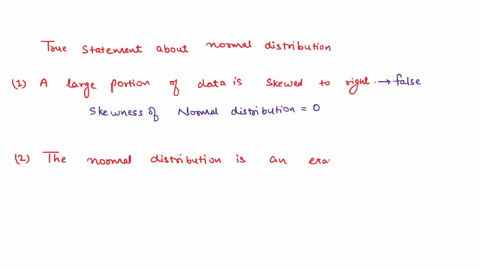 True statement about normal distribution
(1) A large portion of data is skewed to right. → false
Skewness of Normal distribution = 0
(2) The normal distribution is an era